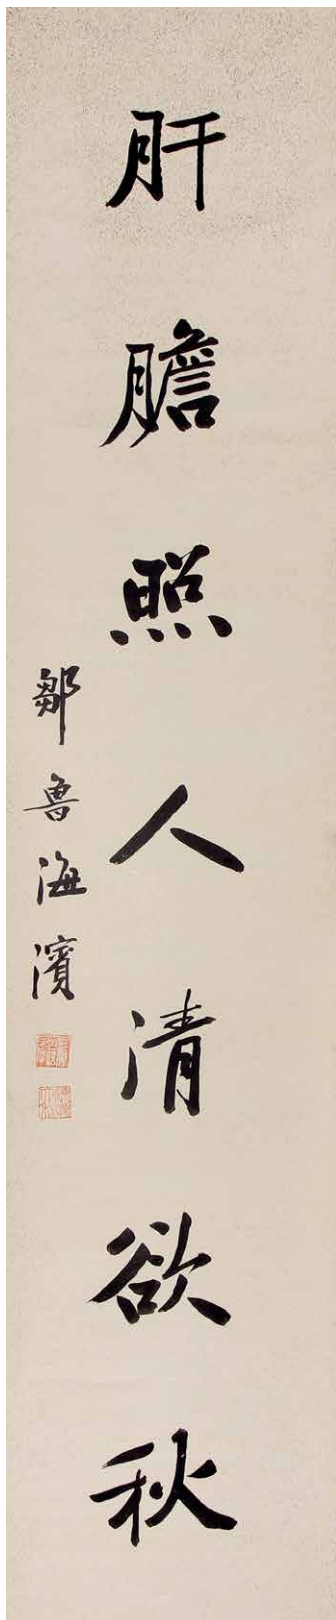 肝膽照人清欲秋
鄒魯海濱